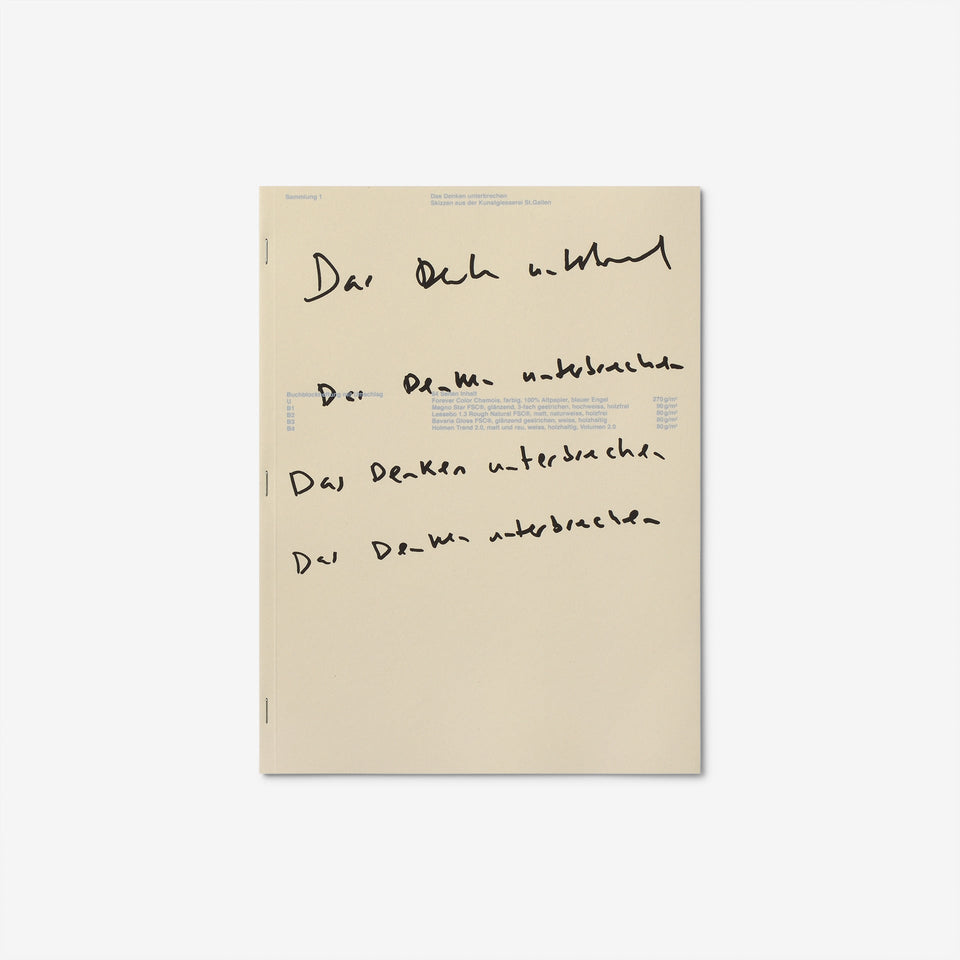 Sammlung 1 Das Denken unterbrechen
Skizzen aus der Kunstgiesserei St.Gallen
Das Denken unterbrechen
Das Denken unterbrechen
Umschlag 64 Seiten Inhalt
U Forever Color Chamois, farbig, 100% Altpapier, blauer Engel 270 g/m²
B1 Magno Star FSC®, glänzend, 3-fach gestrichen, hochweiss, holzfrei 90 g/m²
B2 Lessebo 1.3 Rough Natural FSC®, matt, naturweiss, holzfrei 80 g/m²
B3 Bavaria Gloss FSC®, glänzend gestrichen, weiss, holzhaltig 80 g/m²
B4 Holmen Trend 2.0, matt und rau, weiss, holzhaltig, Volumen 2.0 80 g/m²
Das Denken unterbrechen
Das Denken unterbrechen